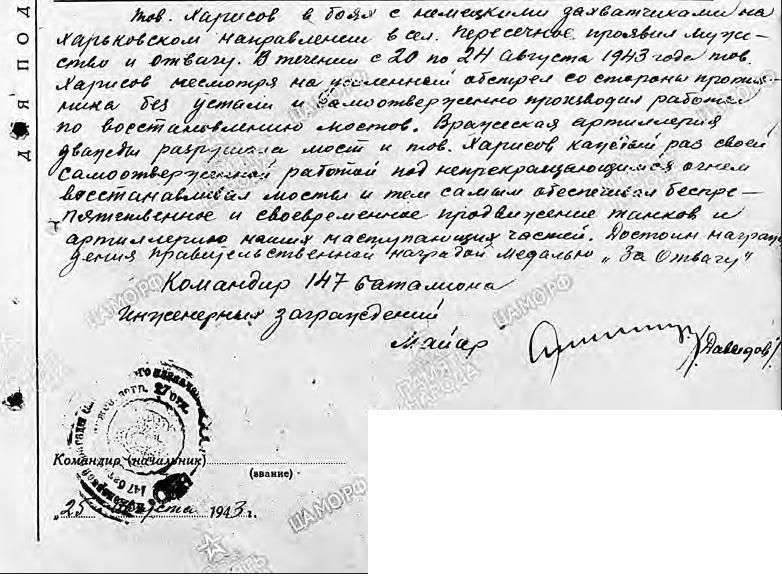 тов. Харисов в боях с немецкими захватчиками на
Харьковском направлении в сел. Пересечное проявил муже-
ство и отвагу. В течении с 20 по 24 августа 1943 года тов.
Харисов несмотря на усиленный обстрел со стороны против-
ника без устали и самоотверженно производил работы
по восстановлению мостов. Вражеская артиллерия
дважды разрушала мост и тов. Харисов каждый раз своей
самоотверженной работой под непрекращающимся огнем
восстанавливал мосты и тем самым обеспечивал беспре-
пятственное и своевременное продвижение танков и
артиллерию наших наступающих частей. Достоин награж-
дения правительственной наградой медалью „За Отвагу"
Командир 147 баталиона
Инженерных заграждений
Майор /Давыдов/
Командир (начальник)
(звание)
„25 августа 1943 г.
ДЛЯ ПОД
ЦАМО РФ
ЦАМО РФ
ЦАМО РФ
ПАМЯТЬ НАРОДА
ЦАМО РФ